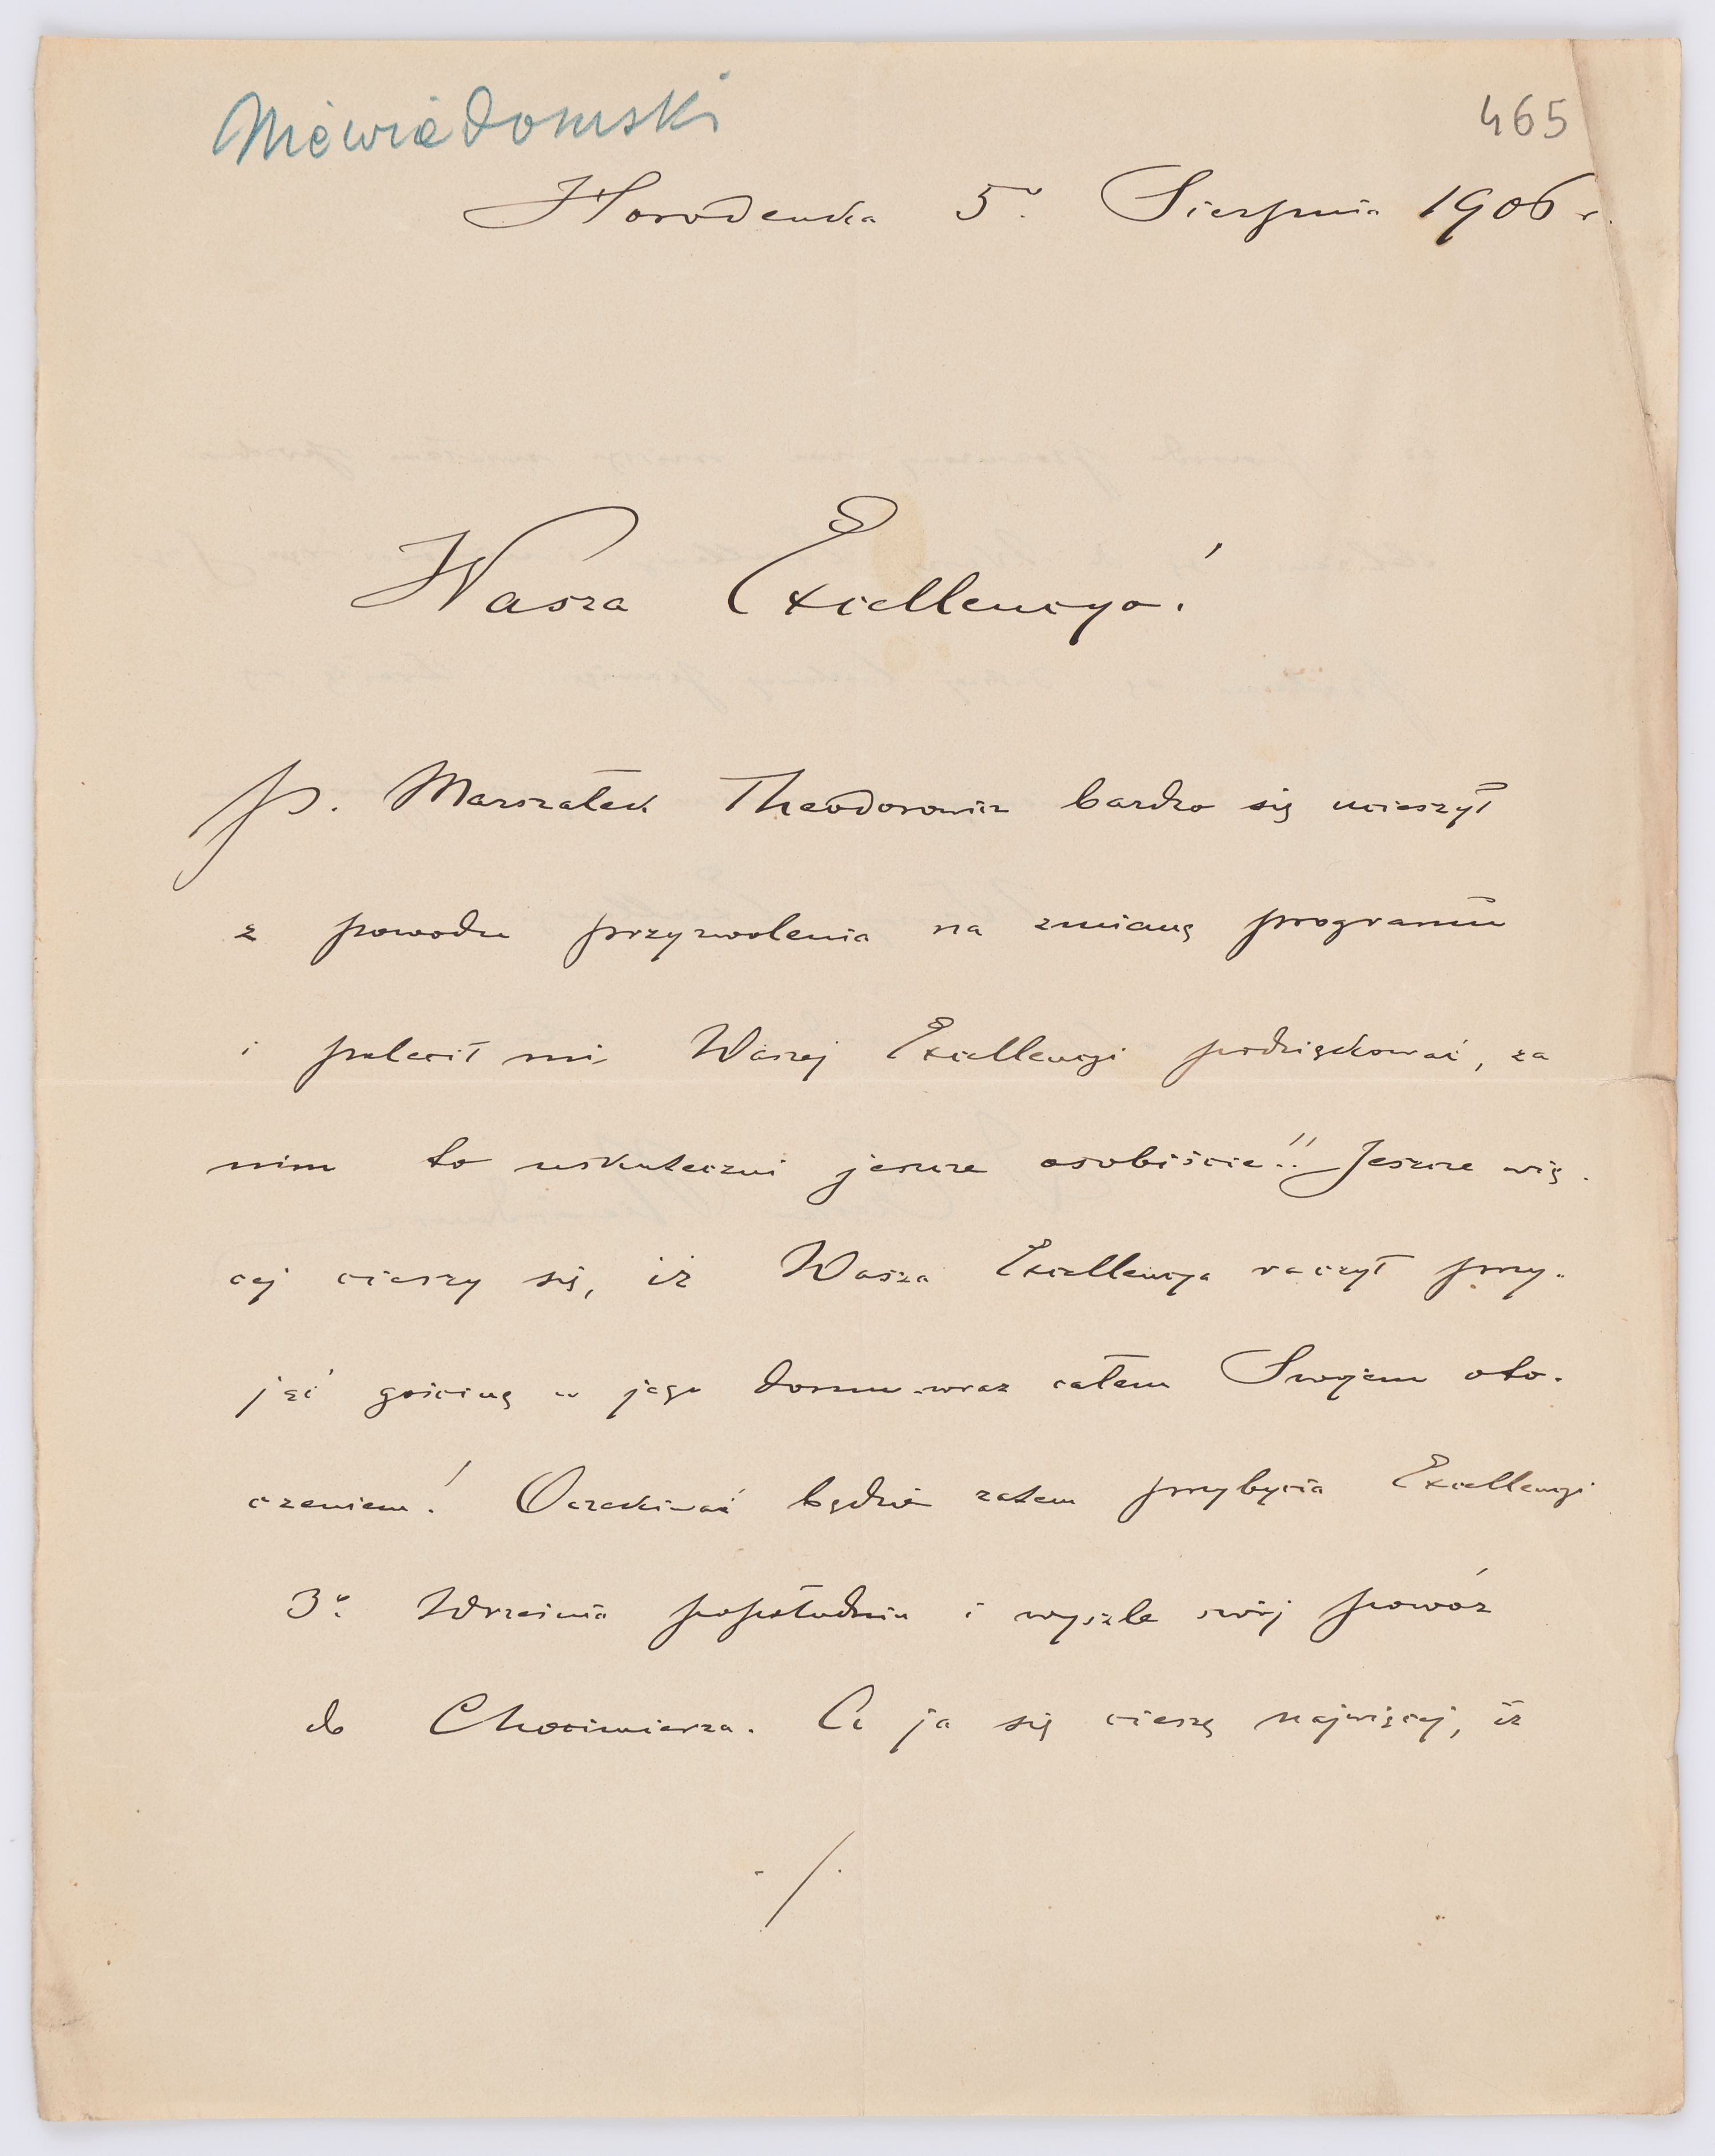 Niewiadomski
465
Horodenka 5go Sierpnia 1906 r.
Wasza Excellencyo!
P. Marszałek Theodorowicz bardzo się ucieszył
z powodu przyzwolenia na zmianę programu
i polecił mi Waszej Excellencyi podziękować, za
nim to uskuteczni jeszcze osobiście!! Jeszcze wię-
cej cieszy się, iż Wasza Excellencya raczył przy-
jąć gościnę w jego domu wraz całem Swojem oto-
czeniem! Oczekiwać będzie zatem przybycia Excellencyi
3go Września popołudniu i wyszle swój powóz
do Chocimierza. Co ja się cieszę najwięcej, iż
./.